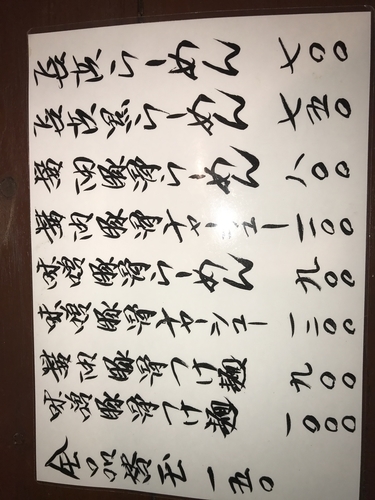 長浜らーめん 七〇〇
長浜黒らーめん 七五〇
醤油豚骨らーめん 八〇〇
醤油豚骨チャーシュー 一一〇〇
味噌豚骨らーめん 九〇〇
味噌豚骨チャーシュー 一二〇〇
醤油豚骨つけ麺 九〇〇
味噌豚骨つけ麺 一〇〇〇
全品替玉 一五〇